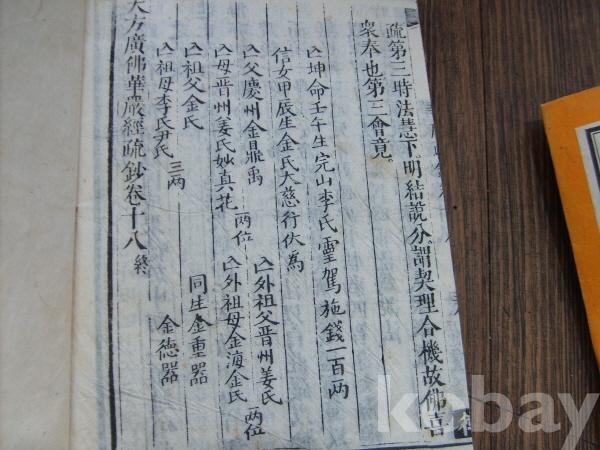 疏第三時法慧下明結說分謂契理合機故佛喜
衆奉也第三會竟
亡坤命壬午生完山李氏靈駕施錢一百两
信女甲辰生金氏大慈行伏爲
亡父慶州金鼎禹
亡母晋州姜氏妙真花 两位
亡外祖父晋州姜氏
亡外祖母金海金氏 两位
亡祖父金氏
亡祖母李氏尹氏 三两
同生金重器
金德器
大方廣佛華嚴經疏鈔卷十八 終
kobay